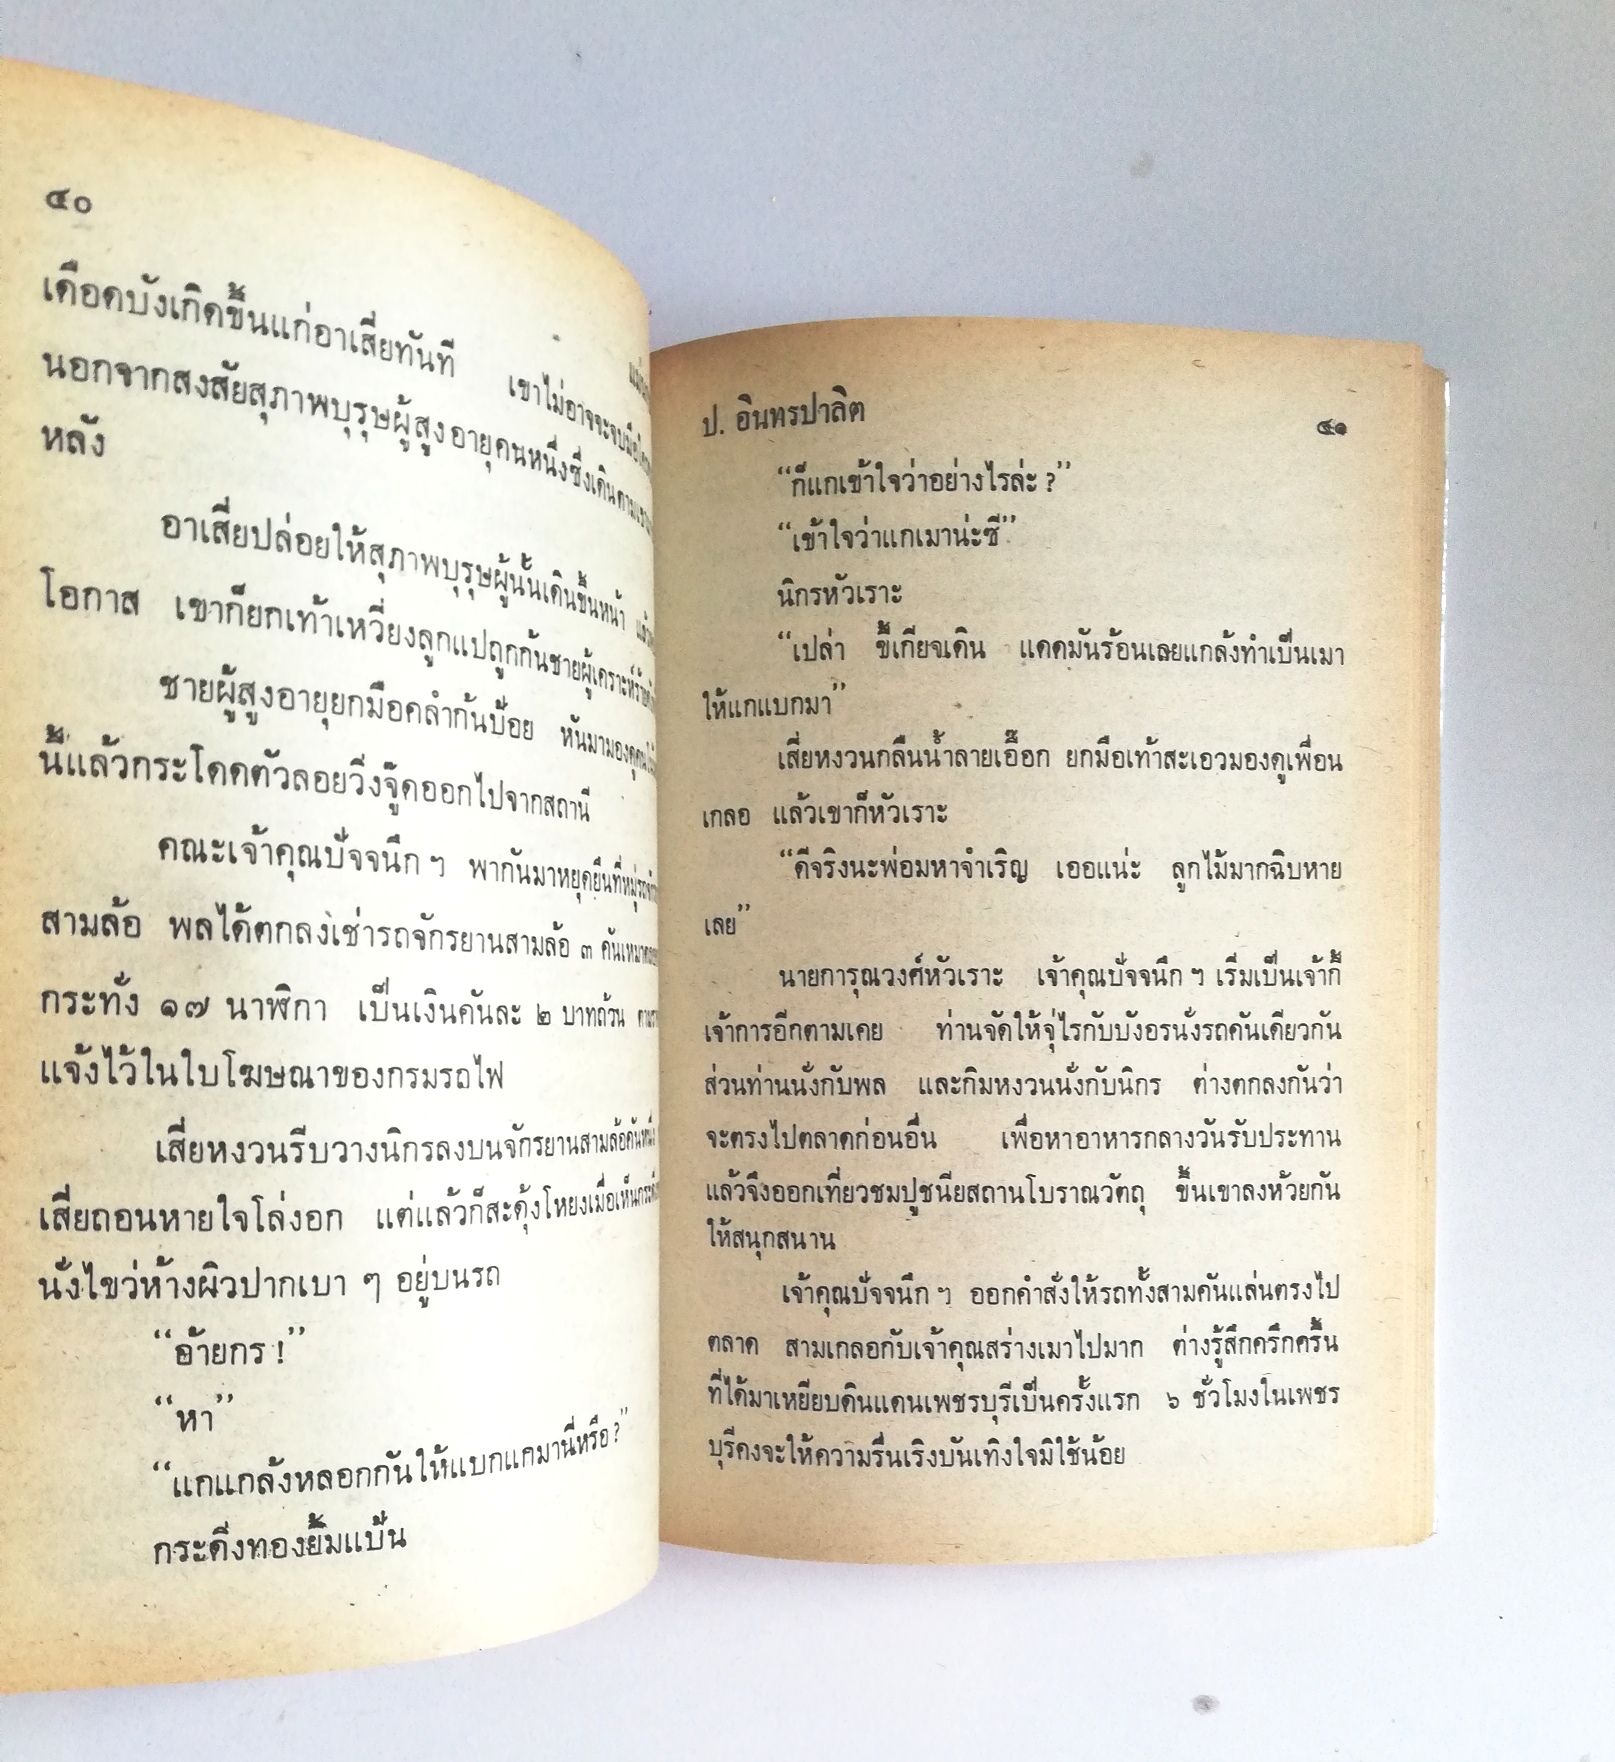 ๔๐
เดือดบังเกิดขึ้นแก่อาเสี่ยทันที เขาไม่อาจจะจับมือ
นอกจากสงสัยสุภาพบุรุษผู้สูงอายุคนหนึ่งซึ่งเดินตาม
หลัง
อาเสี่ยปล่อยให้สุภาพบุรุษผู้นั้นเดินขึ้นหน้า
โอกาส เขาก็ยกเท้าเหวี่ยงลูกแปถูกก้นชายผู้เคราะห์ร้าย
ชายผู้สูงอายุยกมือคลำก้นป้อย หันมามองดู
นี้แล้วกระโดดตัวลอยวิ่งจู๊ดออกไปจากสถานี
คณะเจ้าคุณปัจจนึก ฯ พากันมาหยุดยืนที่หมู่
สามล้อ พลได้ตกลงเช่ารถจักรยานสามล้อ ๓ คัน
กระทั่ง ๑๗ นาฬิกา เป็นเงินคันละ ๒ บาทถ้วน
แจ้งไว้ในใบโฆษณาของกรมรถไฟ
เสี่ยหงวนรีบวางนิกรลงบนจักรยานสามล้อคันหนึ่ง
เสี่ยถอนหายใจโล่งอก แต่แล้วก็สะดุ้งโหยงเมื่อเห็น
นั่งไขว่ห้างผิวปากเบา ๆ อยู่บนรถ
“อ้ายกร !”
“หา”
“แกแกล้งหลอกกันให้แบกแกมานี่หรือ ?”
กระดิ่งทองยิ้มแป้น
ป. อินทรปาลิต
๔๑
“ก็แกเข้าใจว่าอย่างไรล่ะ ?”
“เข้าใจว่าแกเมาน่ะซี”
นิกรหัวเราะ
“เปล่า ขี้เกียจเดิน แดดมันร้อนเลยแกล้งทำเป็นเมา
ให้แกแบกมา”
เสี่ยหงวนกลืนน้ำลายเอื๊อก ยกมือเท้าสะเอวมองดูเพื่อน
เกลอ แล้วเขาก็หัวเราะ
“ดีจริงนะพ่อมหาจำเริญ เออแน่ะ ลูกไม้มากฉิบหาย
เลย”
นายการุณวงศ์หัวเราะ เจ้าคุณปัจจนึก ฯ เริ่มเป็นเจ้ากี้
เจ้าการอีกตามเคย ท่านจัดให้จุ่ไรกับบังอรนั่งรถคันเดียวกัน
ส่วนท่านนั่งกับพล และกิมหงวนนั่งกับนิกร ต่างตกลงกันว่า
จะตรงไปตลาดก่อนอื่น เพื่อหาอาหารกลางวันรับประทาน
แล้วจึงออกเที่ยวชมปูชนียสถานโบราณวัตถุ ขึ้นเขาลงห้วยกัน
ให้สนุกสนาน
เจ้าคุณปัจจนึก ฯ ออกคำสั่งให้รถทั้งสามคันแล่นตรงไป
ตลาด สามเกลอกับเจ้าคุณสร่างเมาไปมาก ต่างรู้สึกครึกครื้น
ที่ได้มาเหยียบดินแดนเพชรบุรีเป็นครั้งแรก ๖ ชั่วโมงในเพชร
บุรีคงจะให้ความรื่นเริงบันเทิงใจมิใช่น้อย